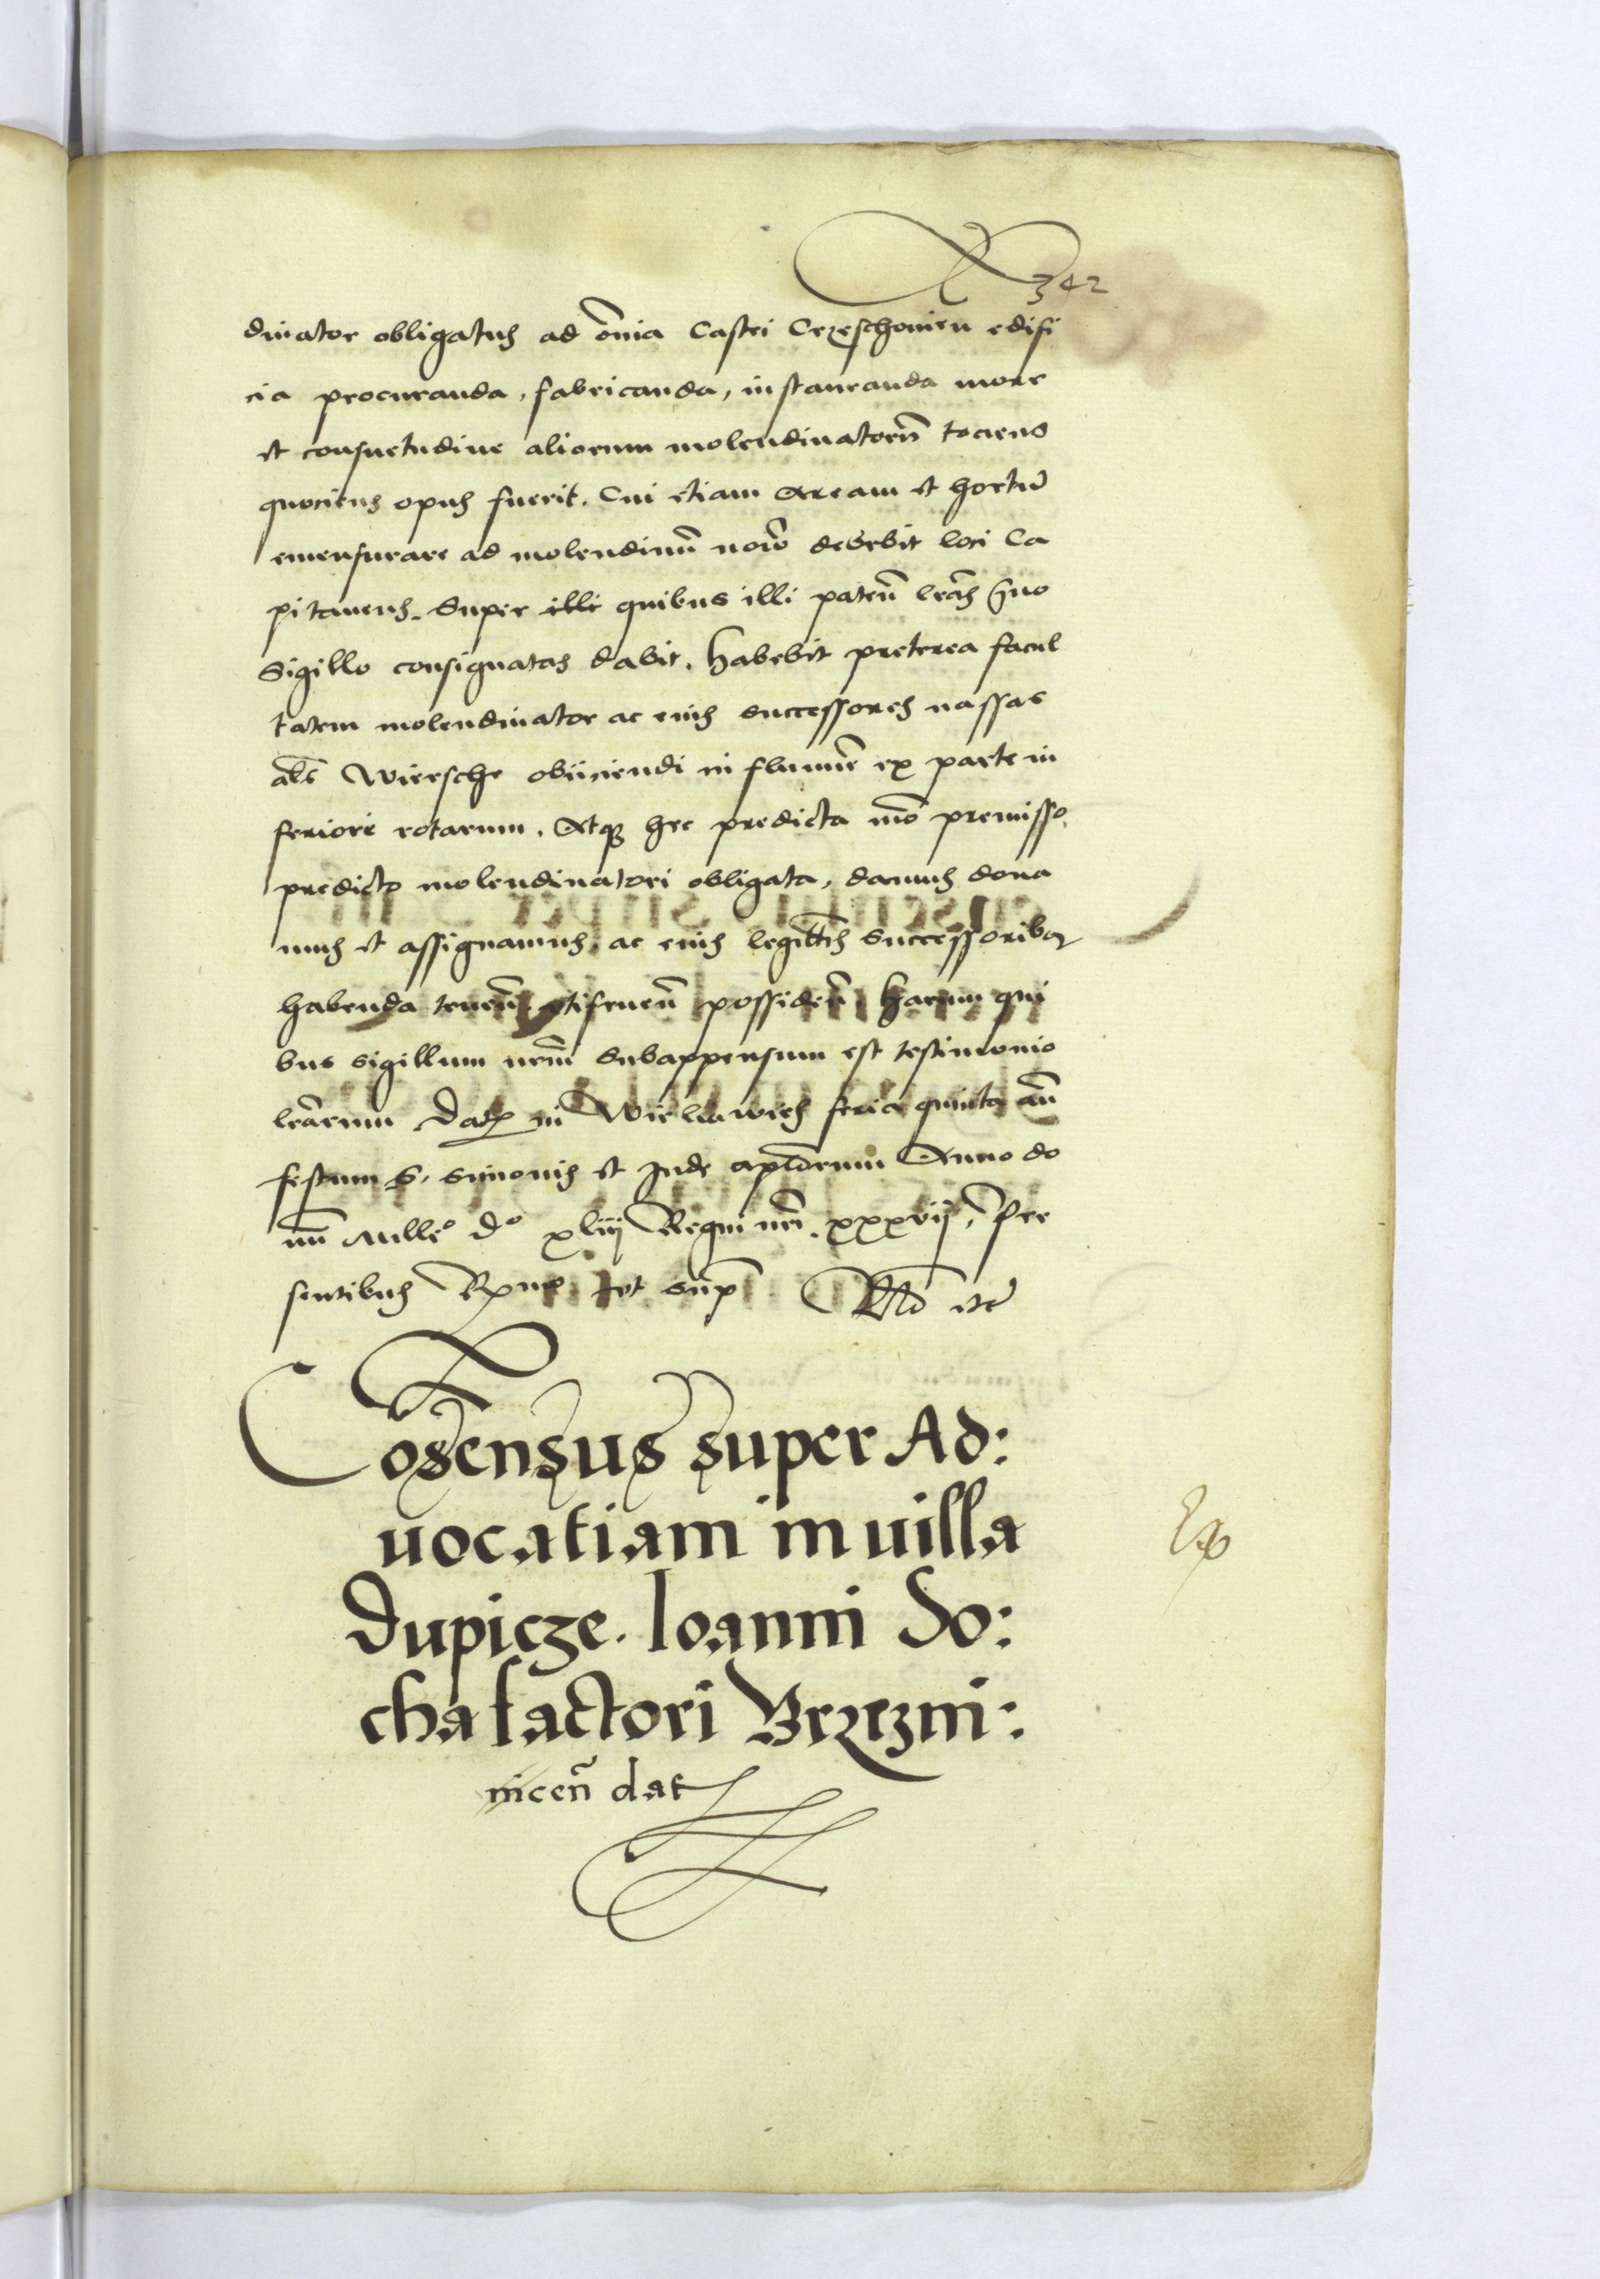 342
dinator obligatus ad om̄ia Castri Czeschovien edifi
cia procuranda, fabricanda, instauranda more
et consuetudine aliorum molendinatorū tociens
quociens opus fuerit. Cui etiam aream et hortū
emensurare ad molendinū novū debebit loci Ca
pitaneus. Super illi quibus illi patēn lrās suo
Sigillo consignatas dabit. Habebit preterea facul
tatem molendinator ac eius successores nassas
als Wiersche obiiciendi in flumine ex parte in
feriore rotarum. Atq hec predicta mō premisso
predicto molendinatori obligata, damus dona
mus et assignamus, ac eius legittīs successoribus
habenda tenen̄ utifruen̄ possiden̄ Harum qui
bus sigillum nrm̄ subappensum est testimonio
lrārum Dat in feria quinta an̄
festum S. Simonis et Jude aplōrum Anno do
mī Mille° d° xliij Regni nrī xxxvij, Pre
sentibus sup̄
Cōsensus super Ad:
vocatiam in villa
Dupicze. Ioanni So:
cha factori Brzezni:
nicen̄ dat